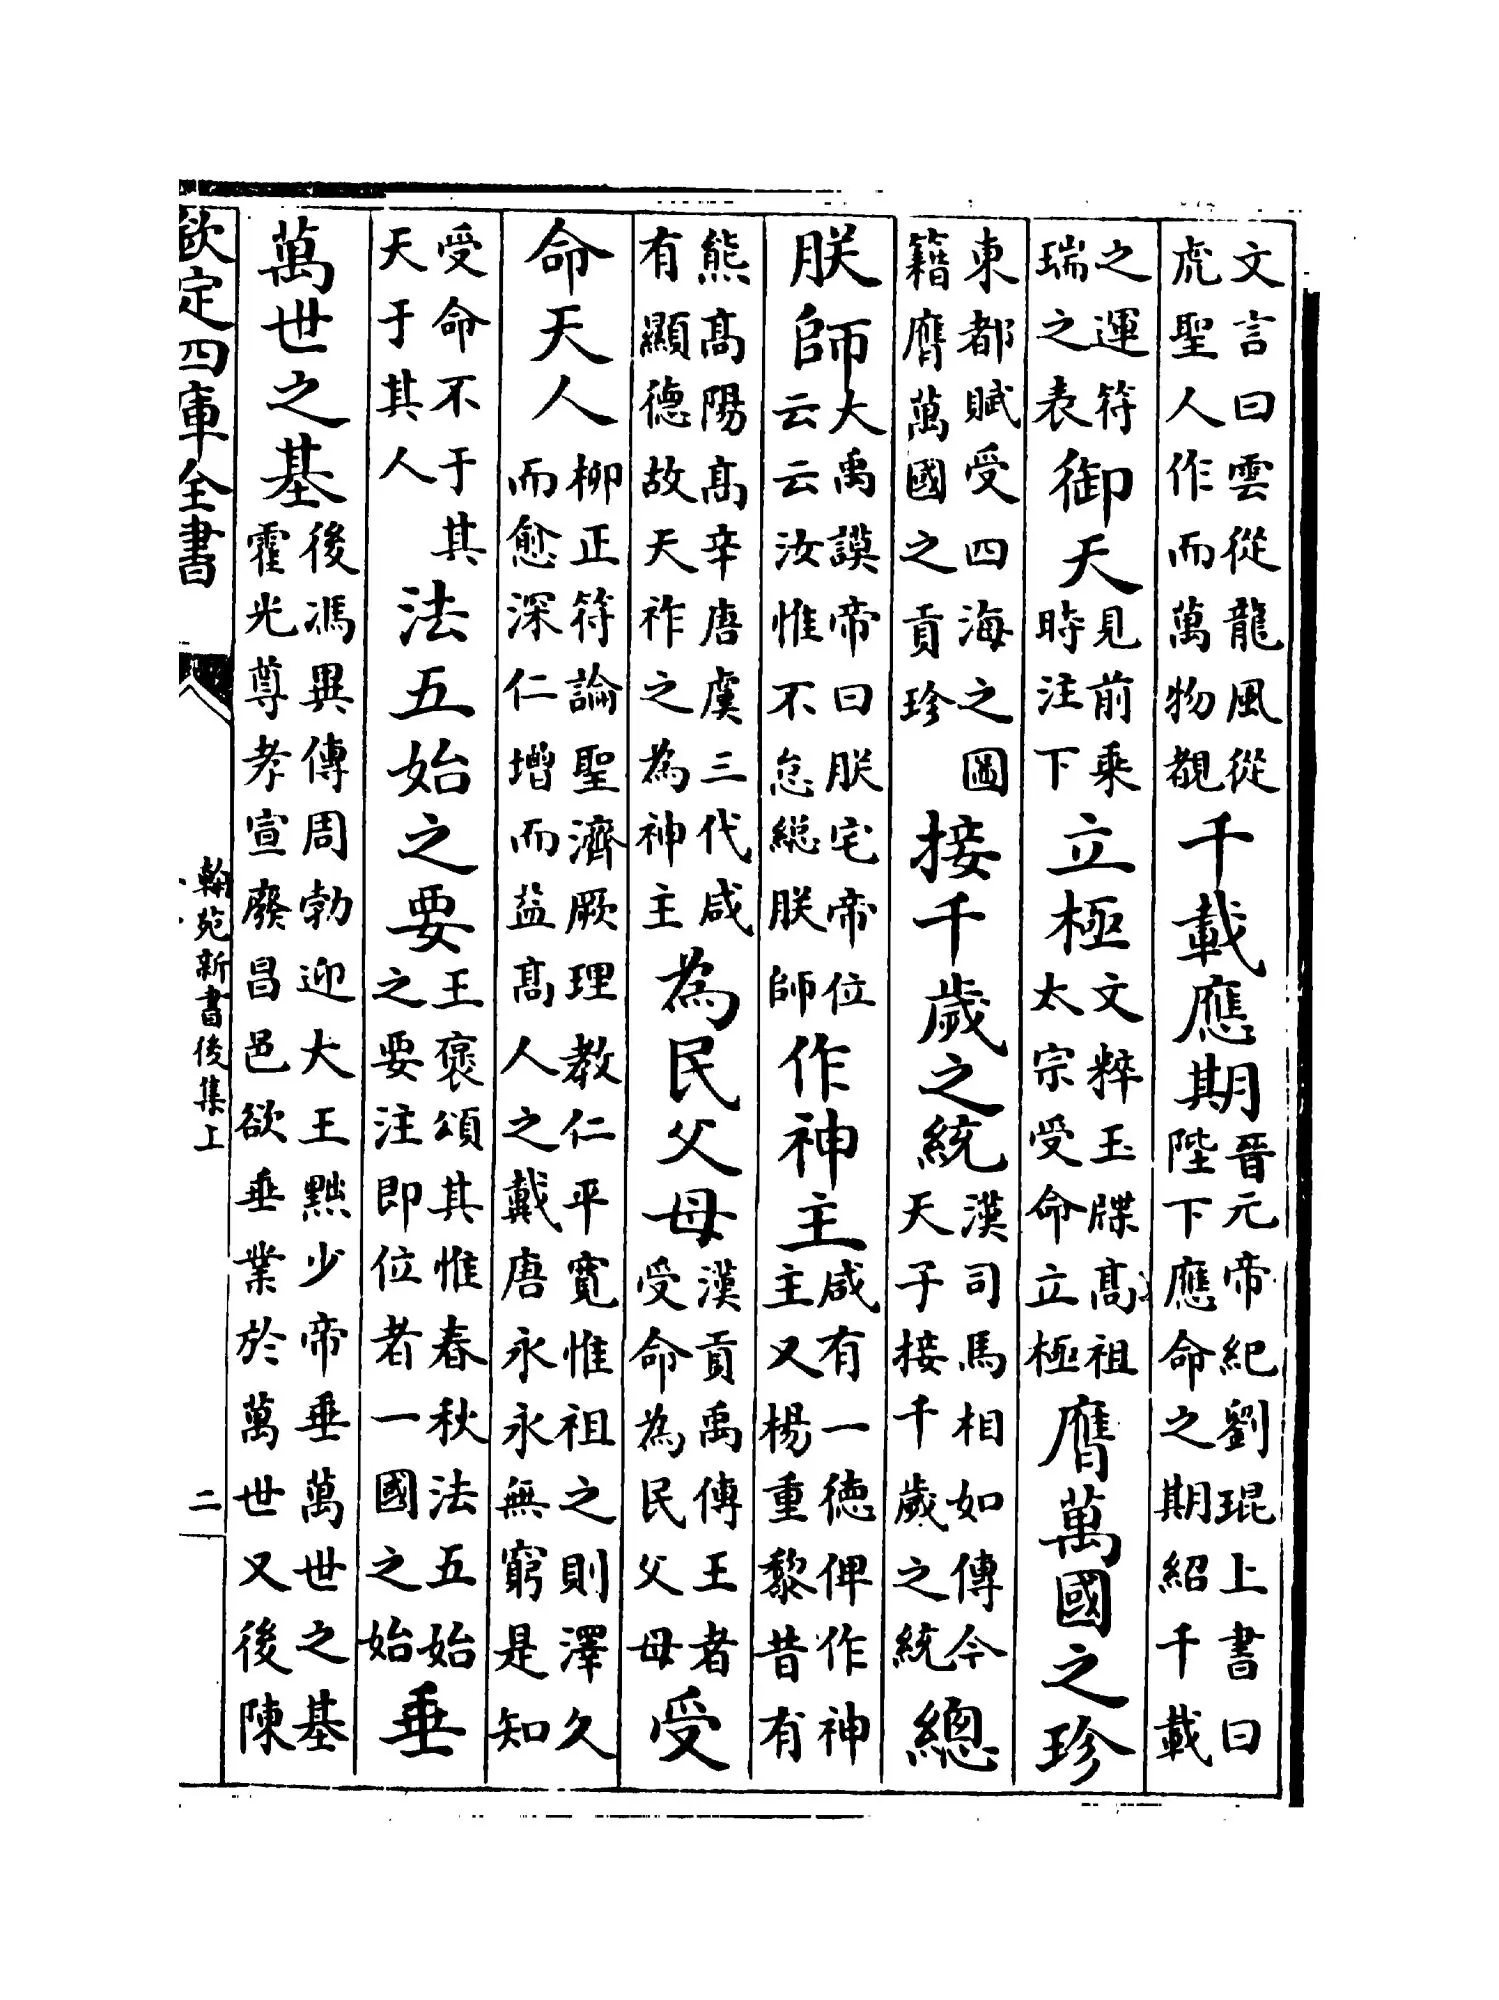 文言曰雲從龍風從虎聖人作而萬物覩千載應期晉元帝紀劉琨上書曰陛下應命之期紹千載
之運符瑞之表御天見前乘時注下立極文粹玉牒髙祖太宗受命立極膺萬國之珍
東都賦受四海之圖籍膺萬國之貢珍接千歲之統漢司馬相如傳今天子接千歲之統總
朕師大禹謨帝曰朕宅帝位云云汝惟不怠總朕師作神主咸有一徳俾作神主又楊重黎昔有
熊髙陽髙辛唐虞三代咸有顯德故天祚之為神主為民父母漢貢禹傳王者受命為民父母受
命天人柳正符論聖濟厥理教仁平寛惟祖之則澤久而愈深仁增而益髙人之戴唐永永無窮是知
受命不于其天于其人法五始之要王褒頌其惟春秋法五始之要注即位者一國之始垂
萬世之基後馮異傳周勃迎大王黜少帝垂萬世之基霍光尊孝宣廢昌邑欲垂業於萬世又後陳
欽定四庫全書
翰苑新書後集上
二